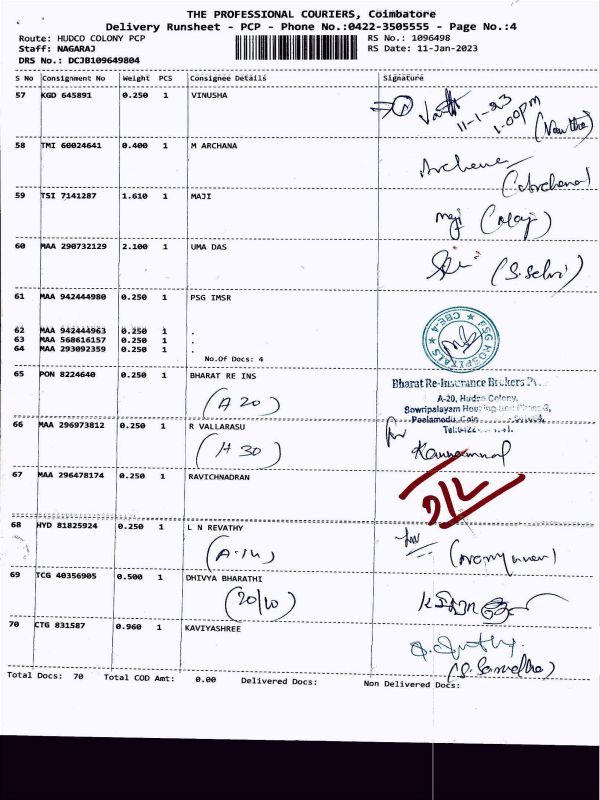 THE PROFESSIONAL COURIERS, Coimbatore
Delivery Runsheet - PCP - Phone No.:0422-3505555 - Page No.:4
Route: HUDCO COLONY PCP RS No.: 1096498
Staff: NAGARAJ RS Date: 11-Jan-2023
DRS No.: DCJB109649804
S No Consignment No Weight PCS Consignee Details Signature
57 KGD 645891 0.250 1 VINUSHA
11-1-23
1.00pm
58 TMI 60024641 0.400 1 M ARCHANA
Archana
(Archana)
59 TSI 7141287 1.610 1 MAJI
maji (Maji)
60 MAA 290732129 2.100 1 UMA DAS
(S.Selvi)
61 MAA 942444980 0.250 1 PSG IMSR
PSG HOSPITALS CBE-4
62 MAA 942444963 0.250 1 .
63 MAA 568616157 0.250 1 .
64 MAA 293092359 0.250 1 .
No.Of Docs: 4
65 PON 8224640 0.250 1 BHARAT RE INS
(A 20)
Bharat Re-Insurance Brokers
A-20, Hudco Colony,
Sowripalayam
Peelamedu,
66 MAA 296973812 0.250 1 R VALLARASU
(H 30)
for
67 MAA 296478174 0.250 1 RAVICHNADRAN
D/L
68 HYD 81825924 0.250 1 L N REVATHY
(A-14)
for
69 TCG 40356905 0.500 1 DHIVYA BHARATHI
(20/10)
70 CTG 831587 0.960 1 KAVIYASHREE
Total Docs: 70 Total COD Amt: 0.00 Delivered Docs: Non Delivered Docs: